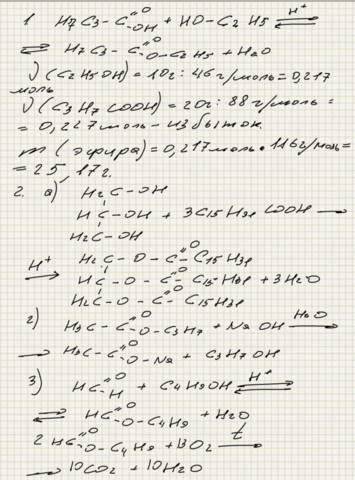 1. H7C3-C=O-OH + HO-C2H5 ⇌ H+
⇌ H7C3-C=O-O-C2H5 + H2O
ν(C2H5OH) = 10г : 46 г/моль = 0,217
моль
ν(C3H7COOH) = 20г : 88 г/моль =
= 0,227 моль - избыток.
m (эфира) = 0,217 моль • 116 г/моль =
= 25,17 г.
2. а) H2C-OH
HC-OH + 3C15H31COOH →
H2C-OH
H2C-O-C=O C15H31
H+ → HC-O-C=O C15H31 + 3H2O
H2C-O-C=O C15H31
2) H3C-C=O-O-C3H7 + NaOH H2O →
→ H3C-C=O-O-Na + C3H7OH
3) HC=O-H + C4H9OH H+ ⇌
⇌ HC=O-O-C4H9 + H2O
2 HC=O-O-C4H9 + 13O2 t →
→ 10CO2 + 10H2O